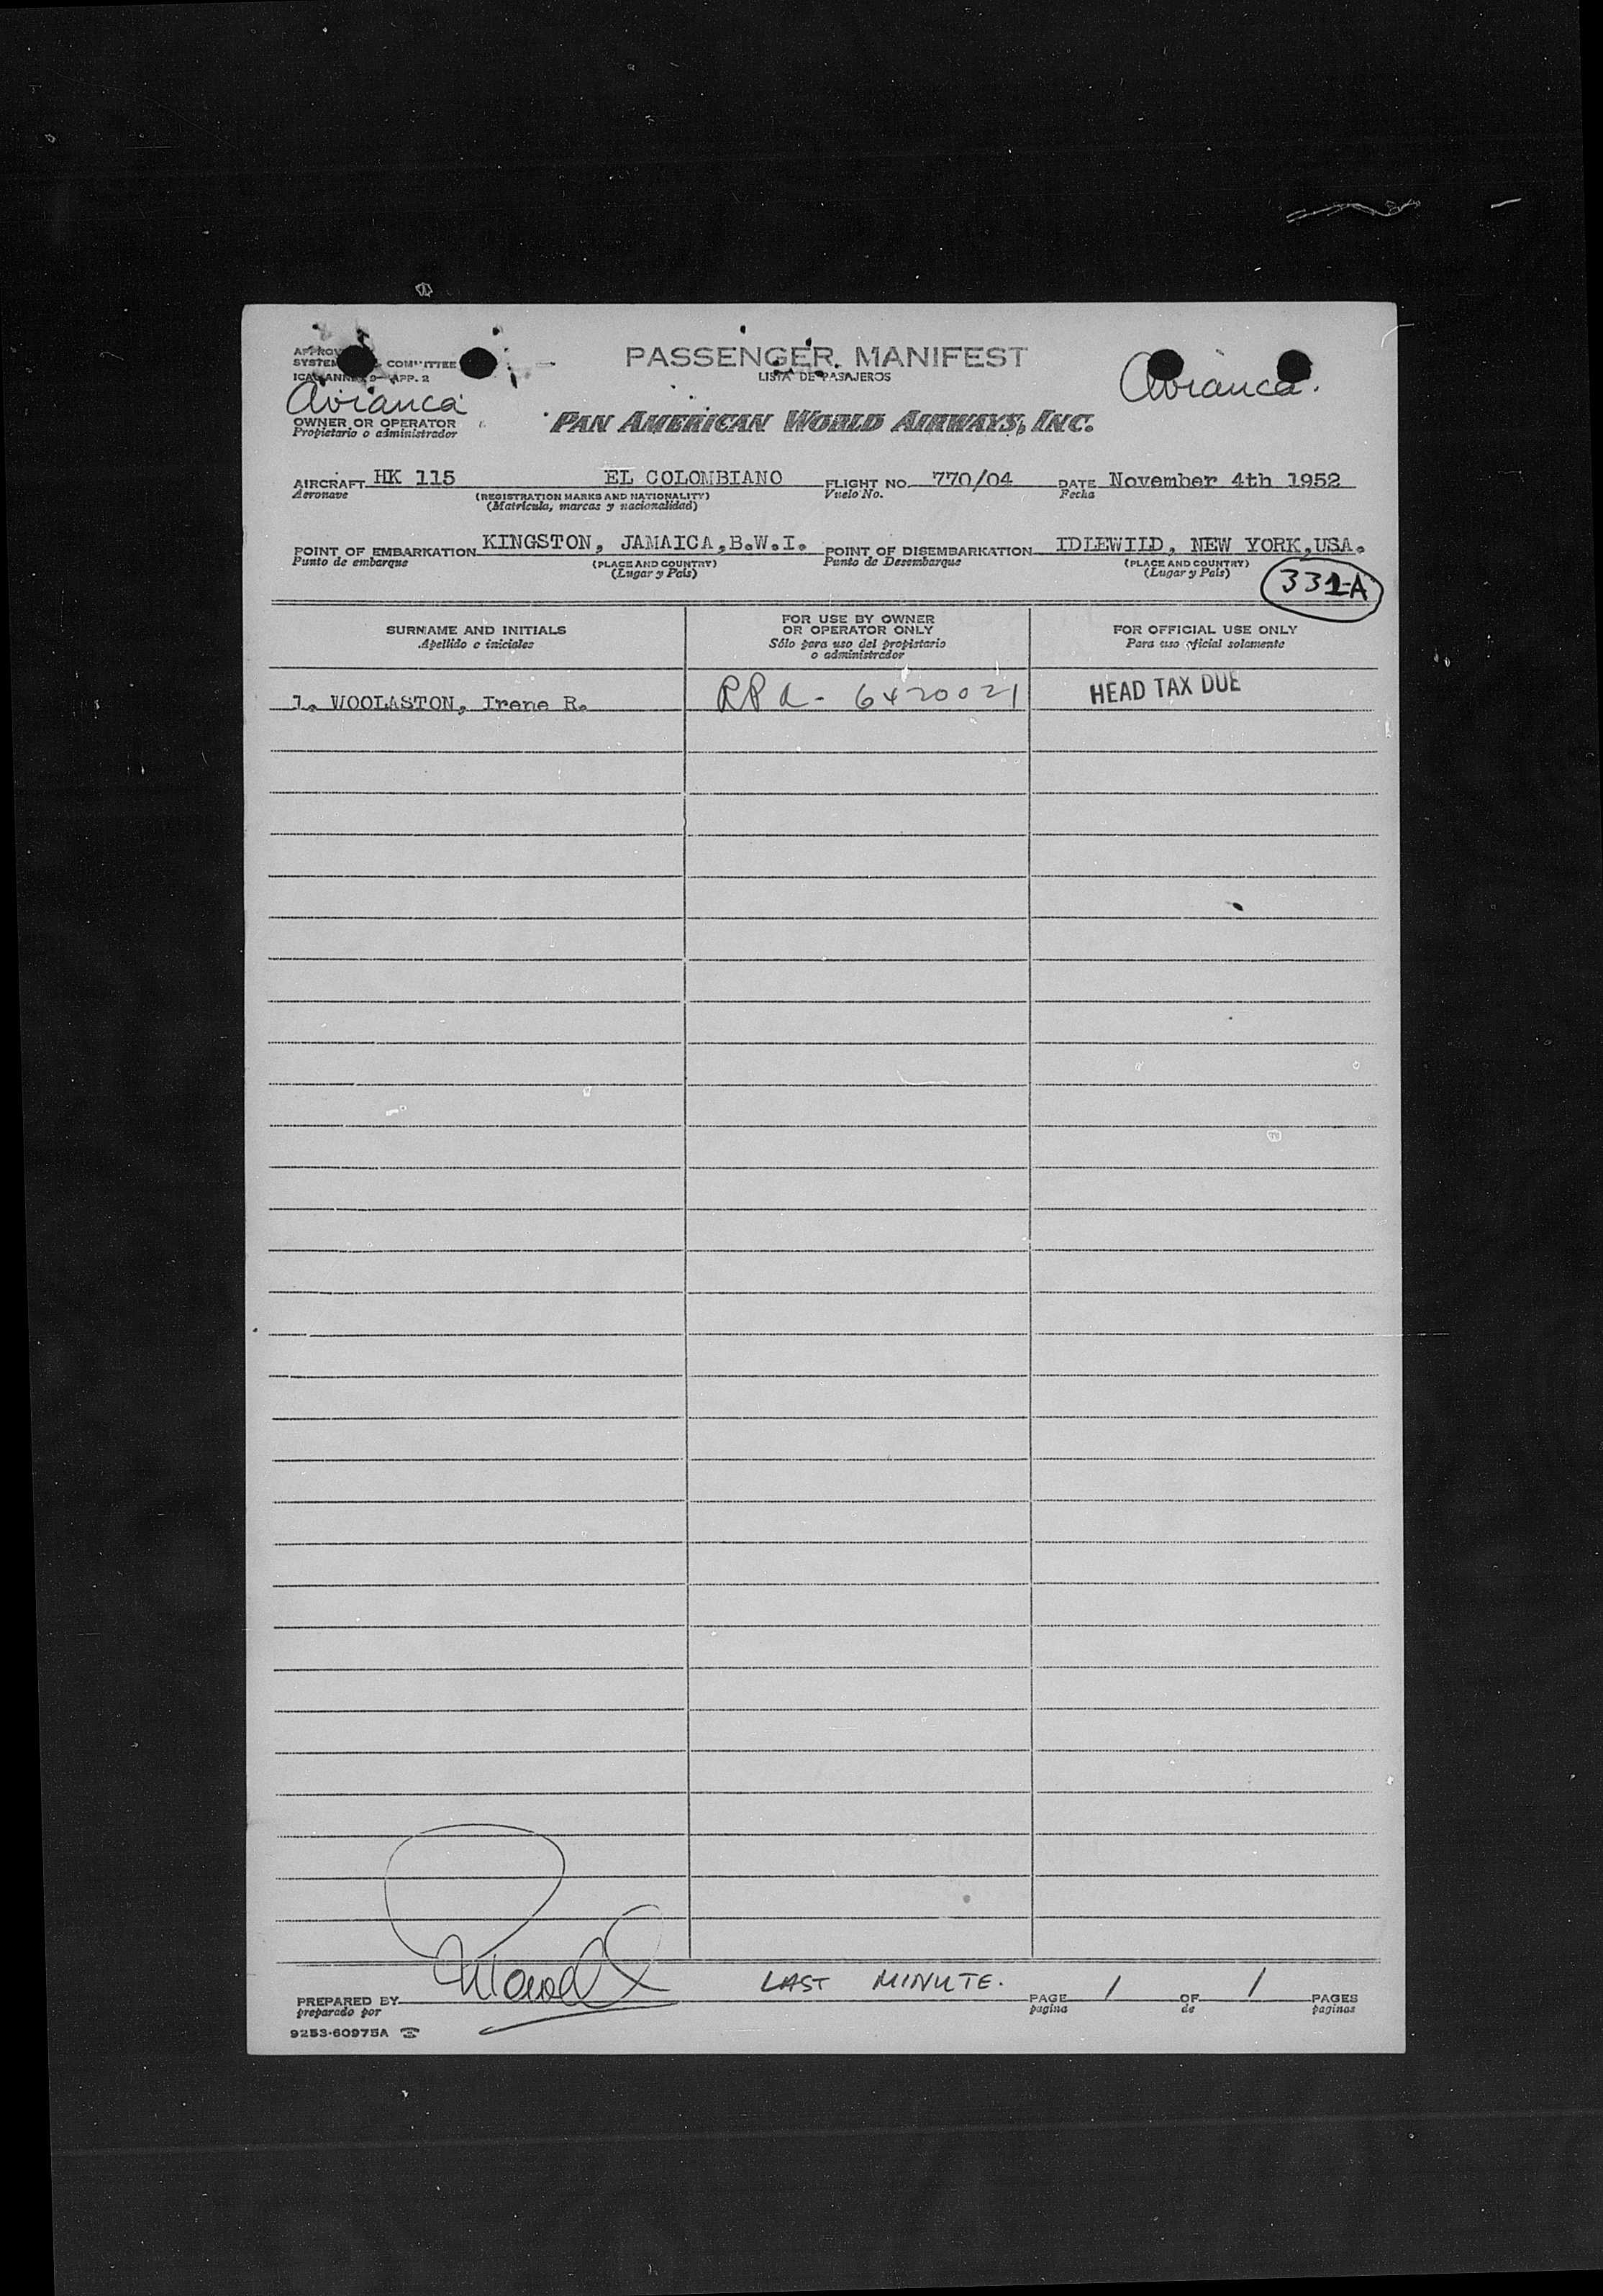 PASSENGER MANIFEST
LISTA DE PASAJEROS
COMMITTEE
APP. 2
Avianca
Avianca.
OWNER OR OPERATOR
Propietario o administrador
PAN AMERICAN WORLD AIRWAYS, INC.
AIRCRAFT HK 115 EL COLOMBIANO FLIGHT NO. 770/04 DATE November 4th 1952
Aeronave (REGISTRATION MARKS AND NATIONALITY) Vuelo No. Fecha
(Matrícula, marcas y nacionalidad)
POINT OF EMBARKATION KINGSTON, JAMAICA,B.W.I. POINT OF DISEMBARKATION IDLEWILD, NEW YORK,USA.
Punto de embarque (PLACE AND COUNTRY) Punto de Desembarque (PLACE AND COUNTRY)
(Lugar y País) (Lugar y País)
331-A
SURNAME AND INITIALS
Apellido e iniciales
FOR USE BY OWNER
OR OPERATOR ONLY
Sólo para uso del propietario
o administrador
FOR OFFICIAL USE ONLY
Para uso oficial solamente
1. WOOLASTON, Irene R. 6420021 HEAD TAX DUE
LAST MINUTE.
PREPARED BY PAGE 1 OF 1 PAGES
preparado por pagina de paginas
9253-60975A